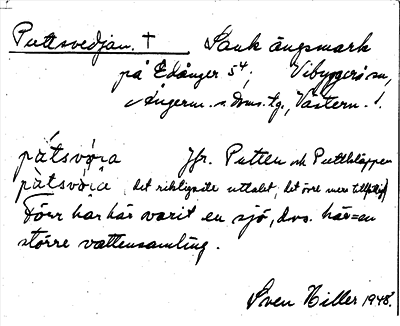 Puttsvedjan. † Sank ängsmark
på Edånger 5⁴, Vibyggerå sn,
Ångerm. s. doms. tg., Västern. l.
pátsvøia Jfr. Putten och Puttkläppen
pàtsvøia, det riktigaste uttalet, det övre mera
Förr har här varit en sjö, dvs. här = en
större vattensamling.
Sven Hiller 1948.